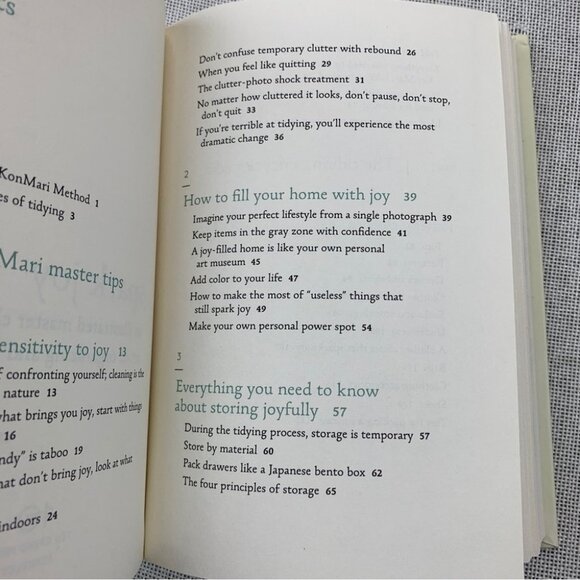 KonMari Method 1
es of tidying 3
Mari master tips
ensitivity to joy 13
f confronting yourself; cleaning is the
nature 13
what brings you joy, start with things
16
ndy" is taboo 19
hat don't bring joy, look at what
indoors 24
Don't confuse temporary clutter with rebound 26
When you feel like quitting 29
The clutter-photo shock treatment 31
No matter how cluttered it looks, don't pause, don't stop,
don't quit 33
If you're terrible at tidying, you'll experience the most
dramatic change 36
2
How to fill your home with joy 39
Imagine your perfect lifestyle from a single photograph 39
Keep items in the gray zone with confidence 41
A joy-filled home is like your own personal
art museum 45
Add color to your life 47
How to make the most of "useless" things that
still spark joy 49
Make your own personal power spot 54
3
Everything you need to know
about storing joyfully 57
During the tidying process, storage is temporary 57
Store by material 60
Pack drawers like a Japanese bento box 62
The four principles of storage 65